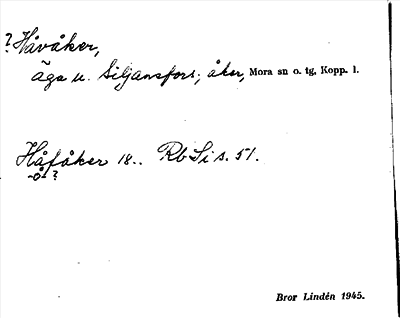 ? Håvåker,
äga u. Siljansfors; åker, Mora sn o. tg, Kopp. l.
Håfåker 18.. Rb Si s. 51.
-å-?
Bror Lindén 1945.